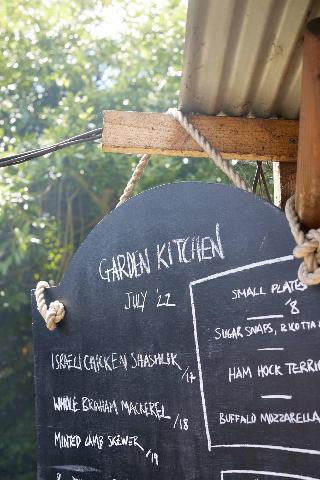 GARDEN KITCHEN
JULY '22
ISRAELI CHICKEN SHASHLIK
/17
WHOLE BRIXHAM MACKEREL /18
MINTED LAMB SKEWER
/19
SMALL PLATES
/8
SUGAR SNAPS, RICOTTA &
HAM HOCK TERRI
BUFFALO MOZZARELLA